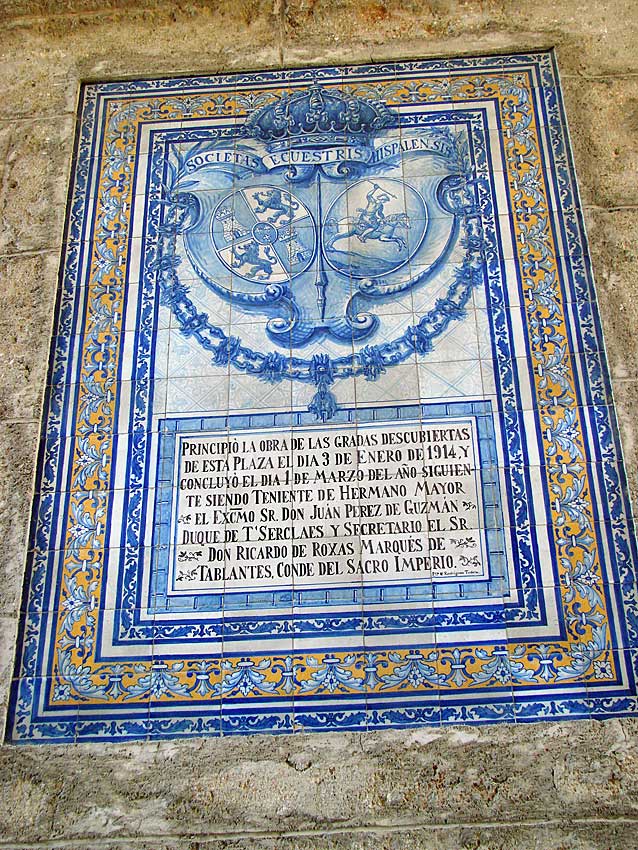 SOCIETAS ECUESTRIS HISPALENSIS
PRINCIPIÓ LA OBRA DE LAS GRADAS DESCUBIERTAS
DE ESTA PLAZA EL DIA 3 DE ENERO DE 1914, Y
CONCLUYÓ EL DIA 1 DE MARZO DEL AÑO SIGUIEN-
TE SIENDO TENIENTE DE HERMANO MAYOR
EL EXCMO SR. DON JUAN PEREZ DE GUZMÁN
DUQUE DE T'SERCLAES Y SECRETARIO EL SR.
DON RICARDO DE ROXAS MARQUÉS DE
TABLANTES, CONDE DEL SACRO IMPERIO.